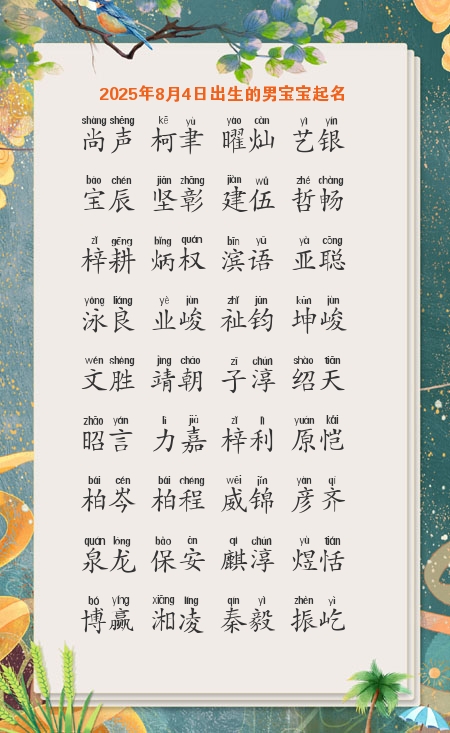 2025年8月4日出生的男宝宝起名
shàng shēng kē yù yào càn yì yín
尚声 柯聿 曜灿 艺银
bǎo chén jiān zhāng jiàn wǔ zhé chàng
宝辰 坚彰 建伍 哲畅
zǐ gēng bǐng quán bīn yǔ yà cōng
梓耕 炳权 滨语 亚聪
yǒng liáng yè jùn zhǐ jūn kūn jùn
泳良 业峻 祉钧 坤峻
wén shèng jìng cháo zǐ chún shào tiān
文胜 靖朝 子淳 绍天
zhāo yán lì jiā zǐ lì yuán kǎi
昭言 力嘉 梓利 原恺
bǎi cén bǎi chéng wēi jǐn yàn qí
柏岑 柏程 威锦 彦齐
quán lóng bǎo ān qí chún yù tián
泉龙 保安 麒淳 煜恬
bó yíng xiāng líng qín yì zhèn yì
博赢 湘凌 秦毅 振屹